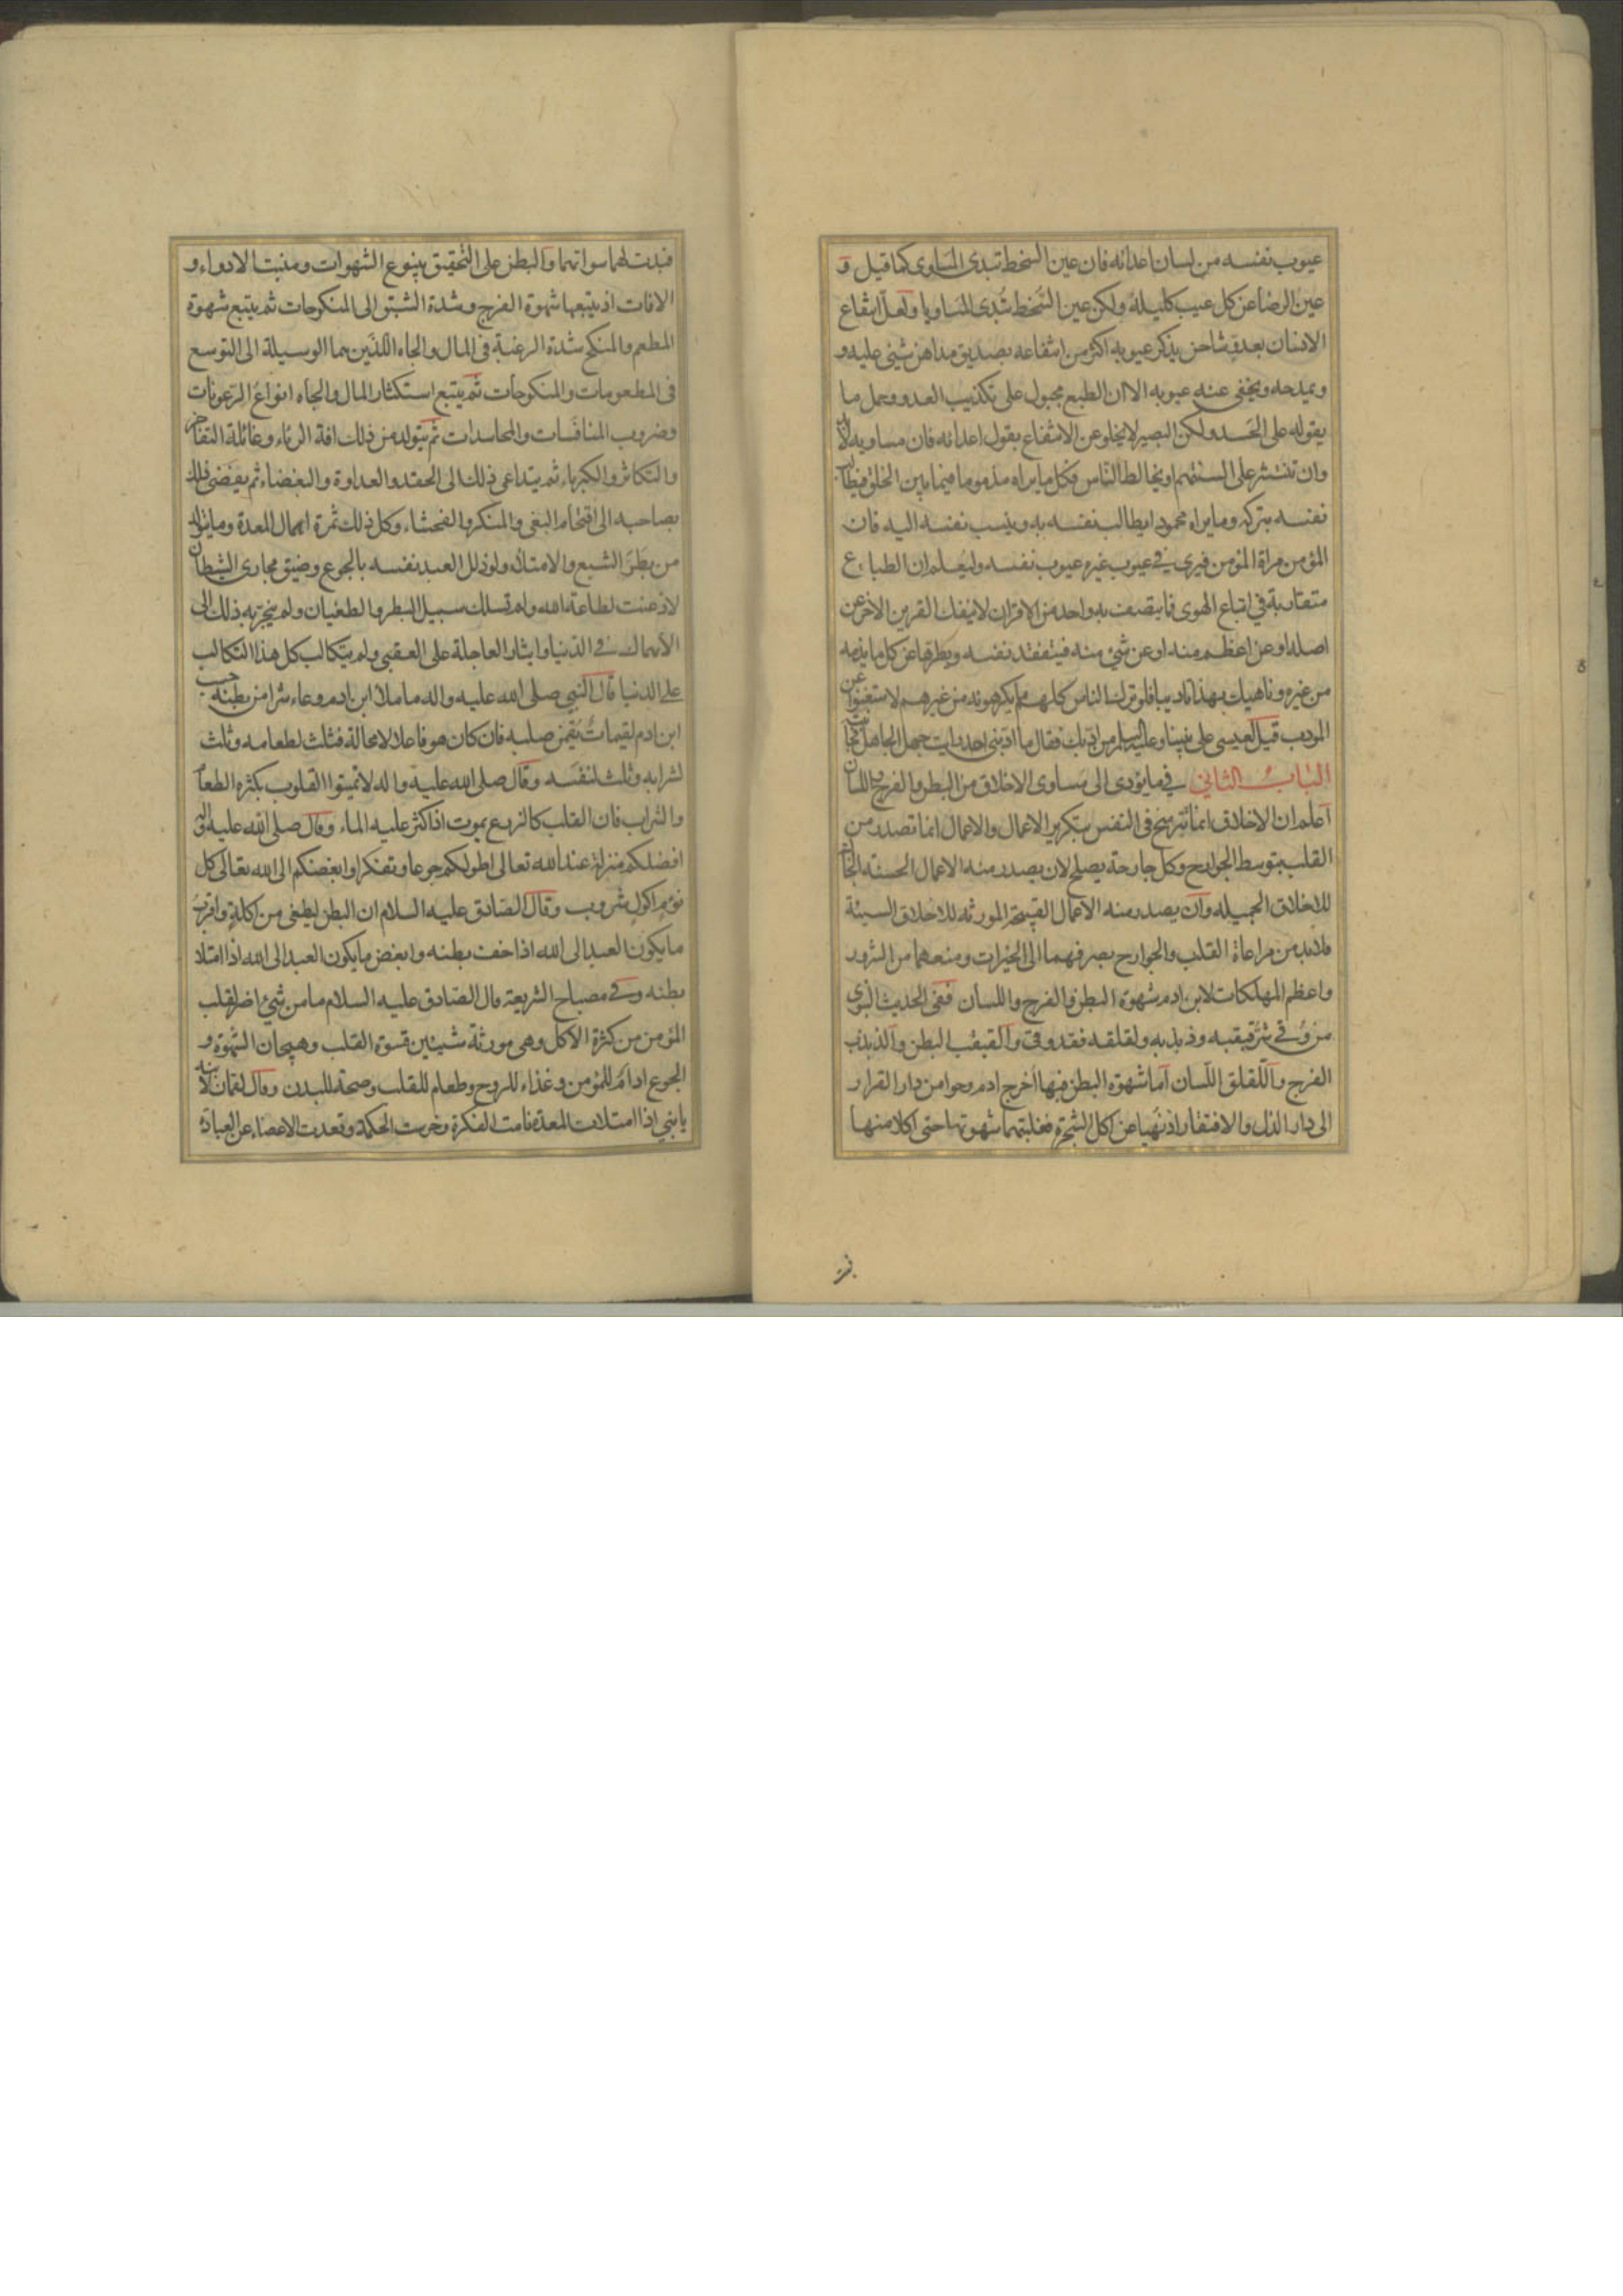 عيوب نفسه من لسان اعدائه فان عين السخط تبدى المساوى كما قيل و
عين الرضا عن كل عيب كليلة ولكن عين السخط تبدى المساويا ولعل انتفاع
الانسان بعدو مشاحن يذكر عيوبه اكثر من انتفاعه بصديق مداهن يثنى عليه و
ويمدحه ويخفى عنه عيوبه الا ان الطبع مجبول على تكذيب العدو وحمل ما
يقوله على الحسد ولكن البصير لا يخلو عن الانتفاع بقول اعدائه فان مساويه لابد
وان تنتشر على السنتهم او يخالط الناس فكل ما يراه مذموما فيما بين الخلق فيطالب
نفسه بتركه وما يراه محمودا يطالب نفسه به وينسب نفسه اليه فان
المؤمن مراة المؤمن فيرى فى عيوب غيره عيوب نفسه وليعلم ان الطباع
متقاربة فى اتباع الهوى فما يتصف به واحد من الاقران لا ينفك القرين الاخر عن
اصله او عن اعظم منه او عن شئ منه فيتفقد نفسه ويطهرها عن كل ما يذمه
من غيره وناهيك بهذا تاديبا فلو ترك الناس كلهم ما يكرهونه من غيرهم لاستغنوا عن
المودب قيل لعيسى على نبينا وعليه السلم من ادبك فقال ما ادبنى احد رايت جهل الجاهل فجانبته
الباب الثانى فيما يؤدى الى مساوى الاخلاق من البطن والفرج واللسان
اعلم ان الاخلاق انما تترسخ فى النفس بتكرير الاعمال والاعمال انما تصدر من
القلب بتوسط الجوارح وكل جارحة يصلح لان يصدر منه الاعمال الحسنة الجالبة
للاخلاق الجميله وان يصدر منه الاعمال القبيحة المورثه للاخلاق السيئة
فلابد من مراعاة القلب والجوارح بصرفهما الى الخيرات ومنعهما من الشرور
واعظم المهلكات لابن ادم شهوة البطن والفرج واللسان ففى الحديث النبوى
من وقى شر قبقبه وذبذبه ولقلقه فقد وقى والقبقب البطن والذبذب
الفرج واللقلق اللسان اما شهوة البطن فبها اخرج ادم وحوا من دار القرار
الى دار الذل والافتقار اذ نهيا عن اكل الشجرة فغلبتهما شهوتها حتى اكلا منها
فبدت
فبدت لهما سواتهما والبطن على التحقيق ينبوع الشهوات ومنبت الادواء و
الافات اذ يتبعها شهوة الفرج وشدة الشبق الى المنكوحات ثم يتبع شهوة
المطعم والمنكح شدة الرغبة فى المال والجاه اللذين هما الوسيلة الى التوسع
فى المطعومات والمنكوحات ثم يتبع استكثار المال والجاه انواع الرعونات
وضروب المنافسات والمحاسدات ثم يتولد من ذلك افة الرياء وغائلة التفاخر
والتكاثر والكبرياء ثم يتداعى ذلك الى الحقد والعداوة والبغضاء ثم يفضى ذلك
بصاحبه الى اقتحام البغى والمنكر والفحشاء وكل ذلك ثمرة اهمال المعدة وما يتولد
من بطر الشبع والامتلاء ولو ذلل العبد نفسه بالجوع وضيق مجارى الشيطان
لاذعنت لطاعة الله ولم تسلك سبيل البطر والطغيان ولم ينجر به ذلك الى
الانهماك فى الدنيا وايثار العاجلة على العقبى ولم يتكالب كل هذا التكالب
على الدنيا قال النبى صلى الله عليه واله ما ملا ابن ادم وعاء شرا من بطنه حسب
ابن ادم لقيمات يقمن صلبه فان كان هو فاعلا لا محالة فثلث لطعامه وثلث
لشرابه وثلث لنفسه وقال صلى الله عليه واله لا تميتوا القلوب بكثرة الطعام
والشراب فان القلب كالزرع يموت اذا كثر عليه الماء وقال صلى الله عليه واله
افضلكم منزلة عند الله تعالى اطولكم جوعا وتفكرا وابغضكم الى الله تعالى كل
نؤم اكول شروب وقال الصادق عليه السلام ان البطن ليطغى من اكله واقرب
ما يكون العبد الى الله اذا خف بطنه وابغض ما يكون العبد الى الله اذا امتلاء
بطنه وفى مصباح الشريعة قال الصادق عليه السلام ما من شئ اضر لقلب
المؤمن من كثرة الاكل وهى مورثة شيئين قسوة القلب وهيجان الشهوة و
الجوع ادام للمؤمن وغذاء للروح وطعام للقلب وصحة للبدن وقال لقمان لابنه
يا بنى اذا امتلات المعدة نامت الفكرة وخرست الحكمة وقعدت الاعضاء عن العبادة